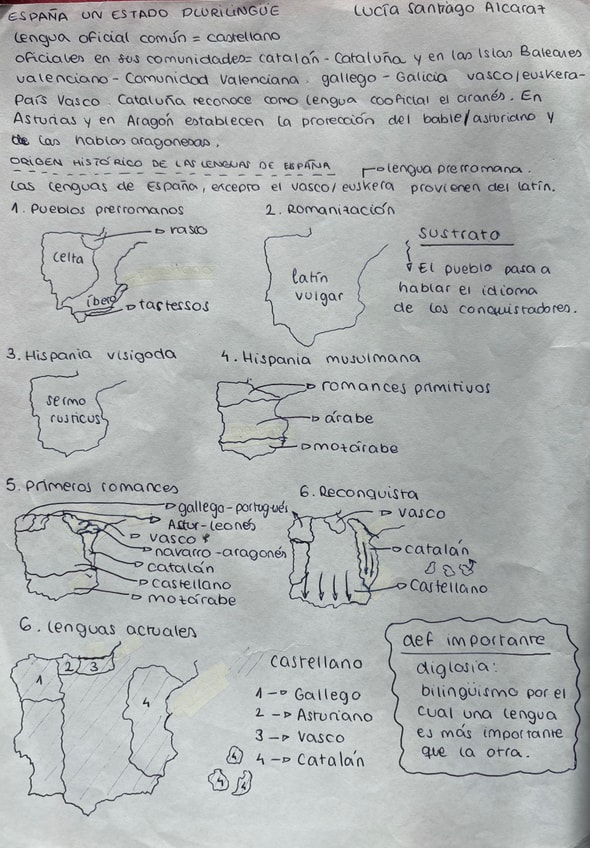 ESPAÑA UN ESTADO PLURILINGÜE Lucía Santiago Alcaraz
Lengua oficial común = castellano
oficiales en sus comunidades = catalán - Cataluña y en las Islas Baleares
valenciano - Comunidad Valenciana. gallego - Galicia vasco/euskera -
País Vasco. Cataluña reconoce como lengua cooficial el aranés. En
Asturias y en Aragón establecen la protección del bable/asturiano y
de las hablas aragonesas.
ORIGEN HISTÓRICO DE LAS LENGUAS DE ESPAÑA lengua prerromana.
Las lenguas de España, excepto el vasco/euskera provienen del latín.
1. Pueblos prerromanos
vasco
celta
íbero
tartessos
2. Romanización
latín
vulgar
SUSTRATO
El pueblo pasa a
hablar el idioma
de los conquistadores.
3. Hispania visigoda
sermo
rusticus
4. Hispania musulmana
romances primitivos
árabe
mozárabe
5. Primeros romances
gallego-portugués
Astur-leonés
vasco
navarro-aragonés
catalán
castellano
mozárabe
6. Reconquista
vasco
catalán
Castellano
6. Lenguas actuales
1
2
3
4
4
4
4
castellano
1 → Gallego
2 → Asturiano
3 → Vasco
4 → Catalán
def importante
diglosia:
bilingüismo por el
cual una lengua
es más importante
que la otra.